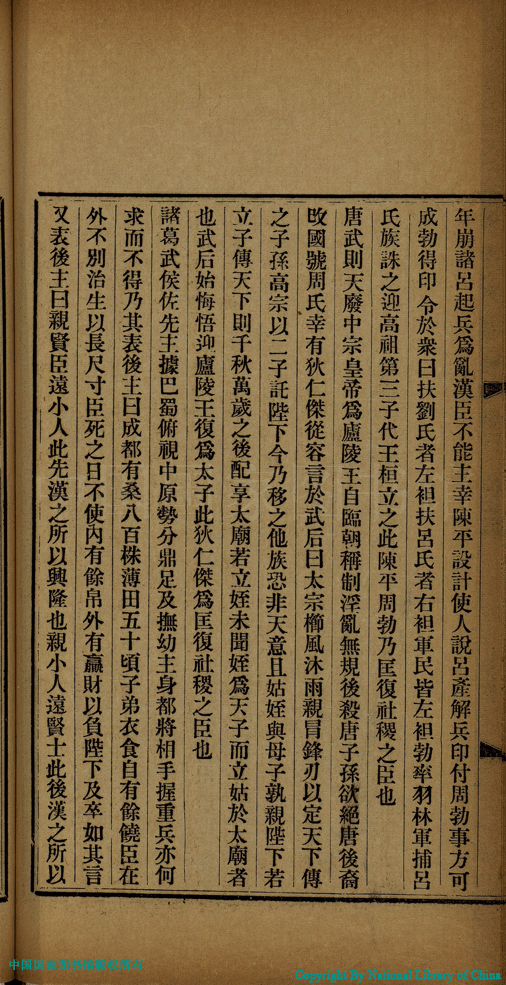 年崩諸呂起兵爲亂漢臣不能主幸陳平設計使人說呂產解兵印付周勃事方可
成勃得印令於衆曰扶劉氏者左袒扶呂氏者右袒軍民皆左袒勃率羽林軍捕呂
氏族誅之迎高祖第三子代王桓立之此陳平周勃乃匡復社稷之臣也
唐武則天廢中宗皇帝爲廬陵王自臨朝稱制淫亂無規後殺唐子孫欲絕唐後裔
改國號周氏幸有狄仁傑從容言於武后曰太宗櫛風沐雨親冒鋒刃以定天下傳
之子孫高宗以二子託陛下今乃移之他族恐非天意且姑姪與母子孰親陛下若
立子傳天下則千秋萬歲之後配享太廟若立姪未聞姪爲天子而立姑於太廟者
也武后始悔悟迎廬陵王復爲太子此狄仁傑爲匡復社稷之臣也
諸葛武侯佐先主據巴蜀俯視中原勢分鼎足及撫幼主身都將相手握重兵亦何
求而不得乃其表後主曰成都有桑八百株薄田五十頃子弟衣食自有餘饒臣在
外不別治生以長尺寸臣死之日不使內有餘帛外有贏財以負陛下及卒如其言
又表後主曰親賢臣遠小人此先漢之所以興隆也親小人遠賢士此後漢之所以
中国国家图书馆版权所有
Copyright By National Library of China